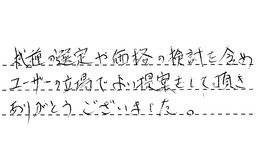 機種の選定や価格の検討を含め
ユーザーの立場でよい提案をして頂き
ありがとうございました。